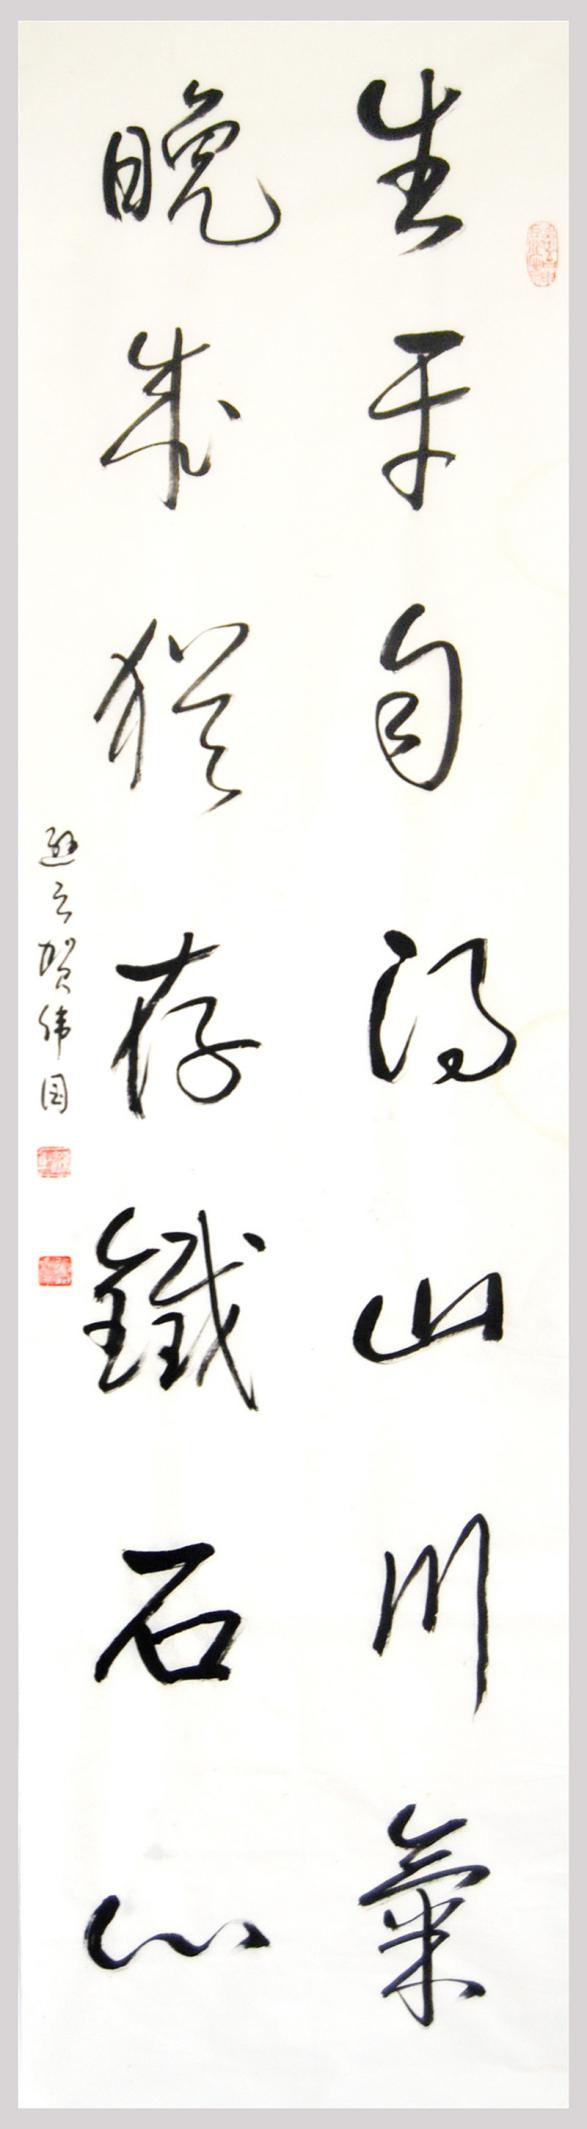 生平自得山川氣
晚歲猶存鐵石心
云贺伟国